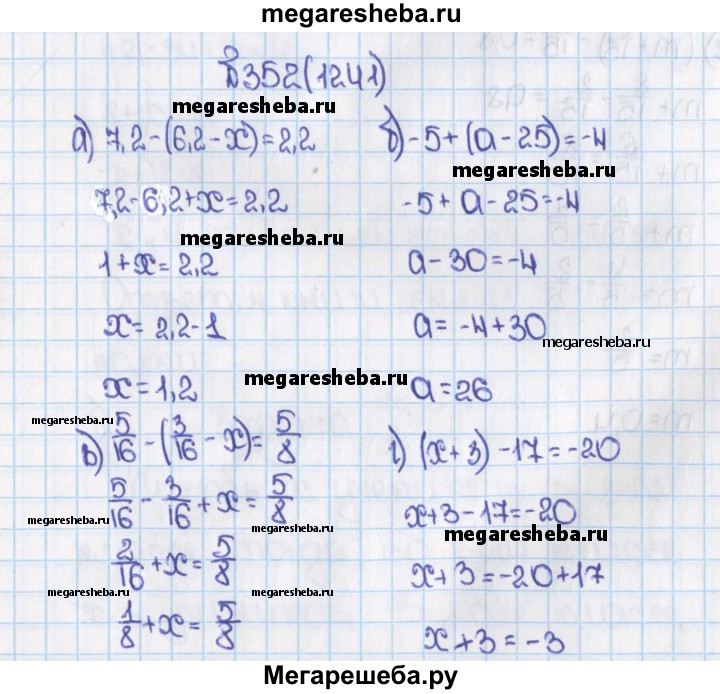 megaresheba.ru
№352(1241)
megaresheba.ru
а) 7,2-(6,2-x)=2,2
7,2-6,2+x=2,2
megaresheba.ru
1+x=2,2
x=2,2-1
x=1,2
б) -5+(a-25)=-4
megaresheba.ru
-5+a-25=-4
a-30=-4
a=-4+30
megaresheba.ru
a=26
megaresheba.ru
megaresheba.ru
в) 5/16-(3/16-x)=5/8
5/16-3/16+x=5/8
megaresheba.ru
megaresheba.ru
2/16+x=5/8
megaresheba.ru
megaresheba.ru
1/8+x=5/8
г) (x+3)-17=-20
x+3-17=-20
megaresheba.ru
x+3=-20+17
x+3=-3
Мегарешеба.ру